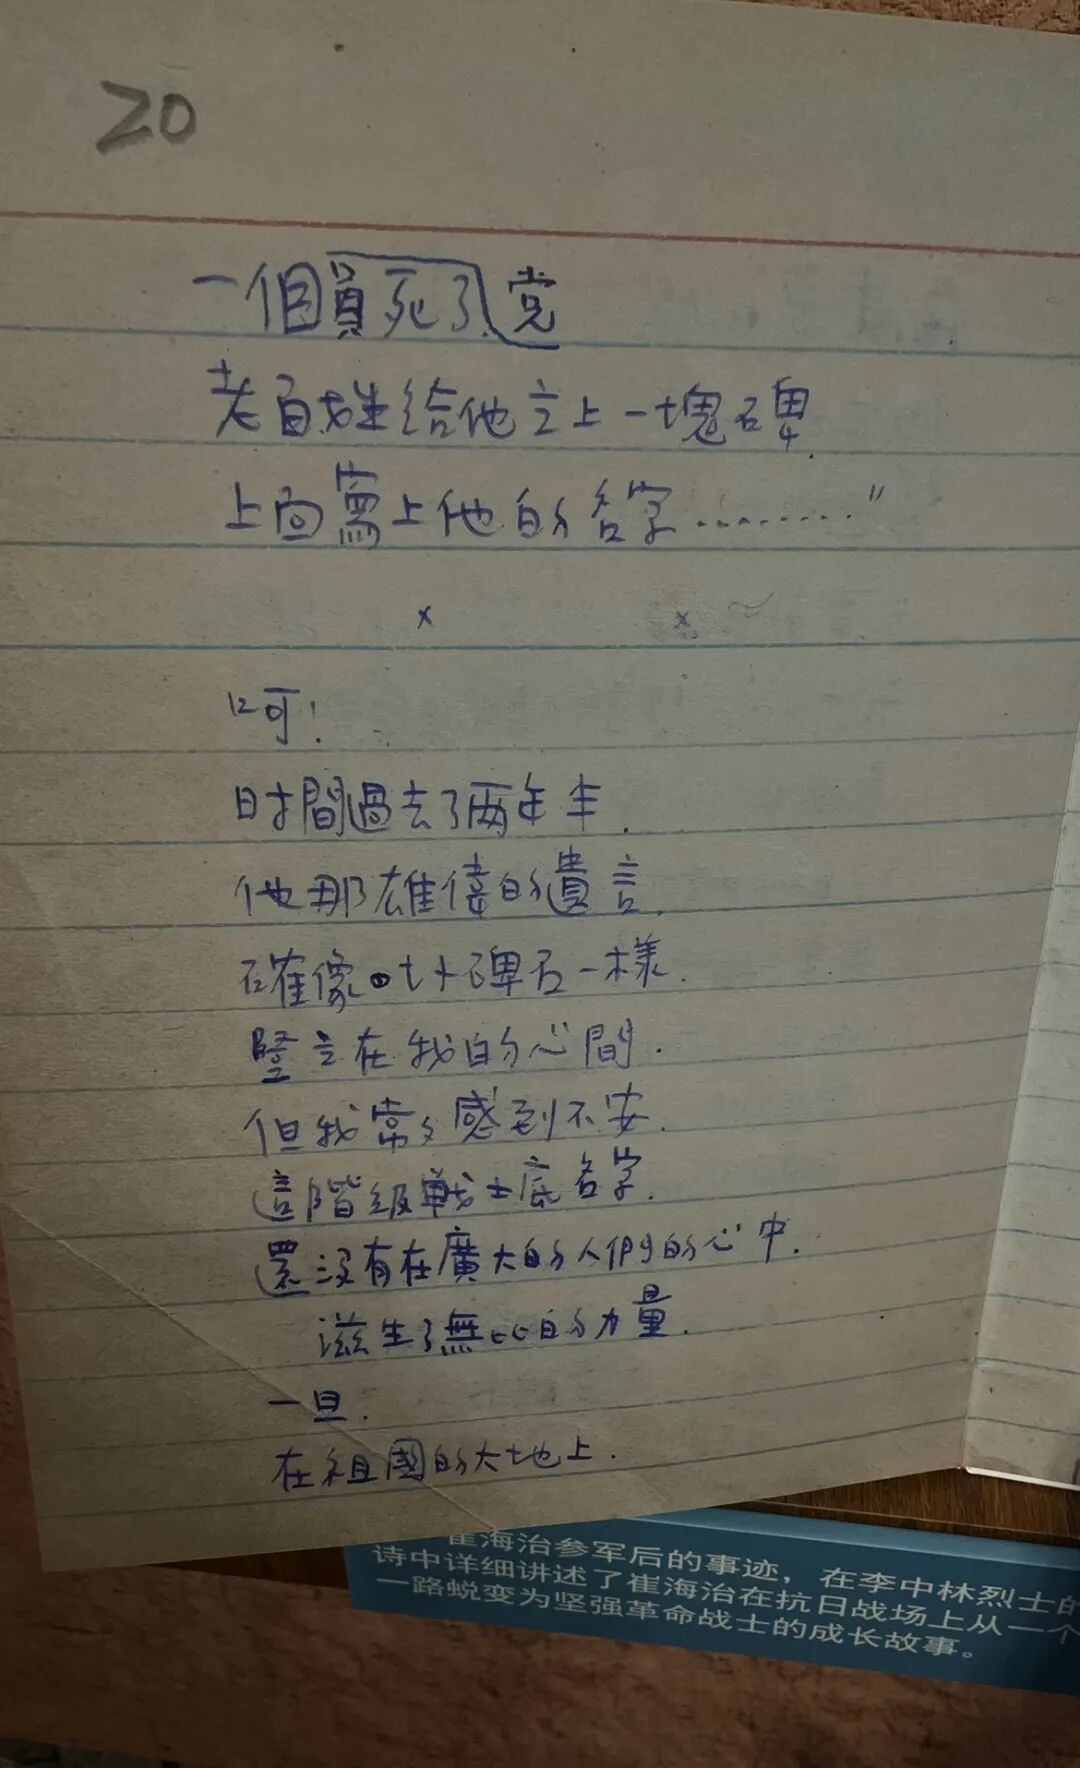 20
一個員死了党
老百姓給他立上一塊碑.
上面寫上他的名字………"
x x
呵!
时間過去了两年半.
他那雄偉的遺言.
確像 碑石一樣.
竪立在我的心間.
但我常々感到不安.
這階級戦士底名字.
還没有在廣大的人們的心中.
滋生了無比的力量.
一旦.
在祖國的大地上.
崔海治参军后的事迹，在李中林烈士的
诗中详细讲述了崔海治在抗日战场上从一个
一路蜕变为坚强革命战士的成长故事。